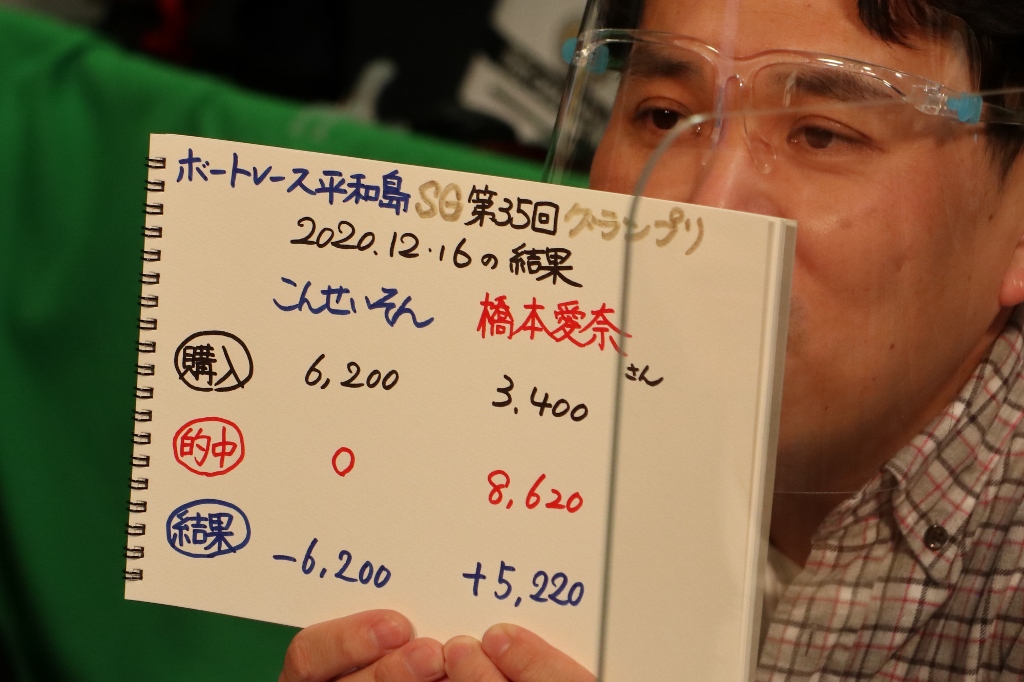 ボートレース平和島SG第35回グランプリ
2020.12.16の結果
こんせいそん 橋本愛奈さん
購入 6,200 3.400
的中 0 8,620
結果 -6,200 +5,220